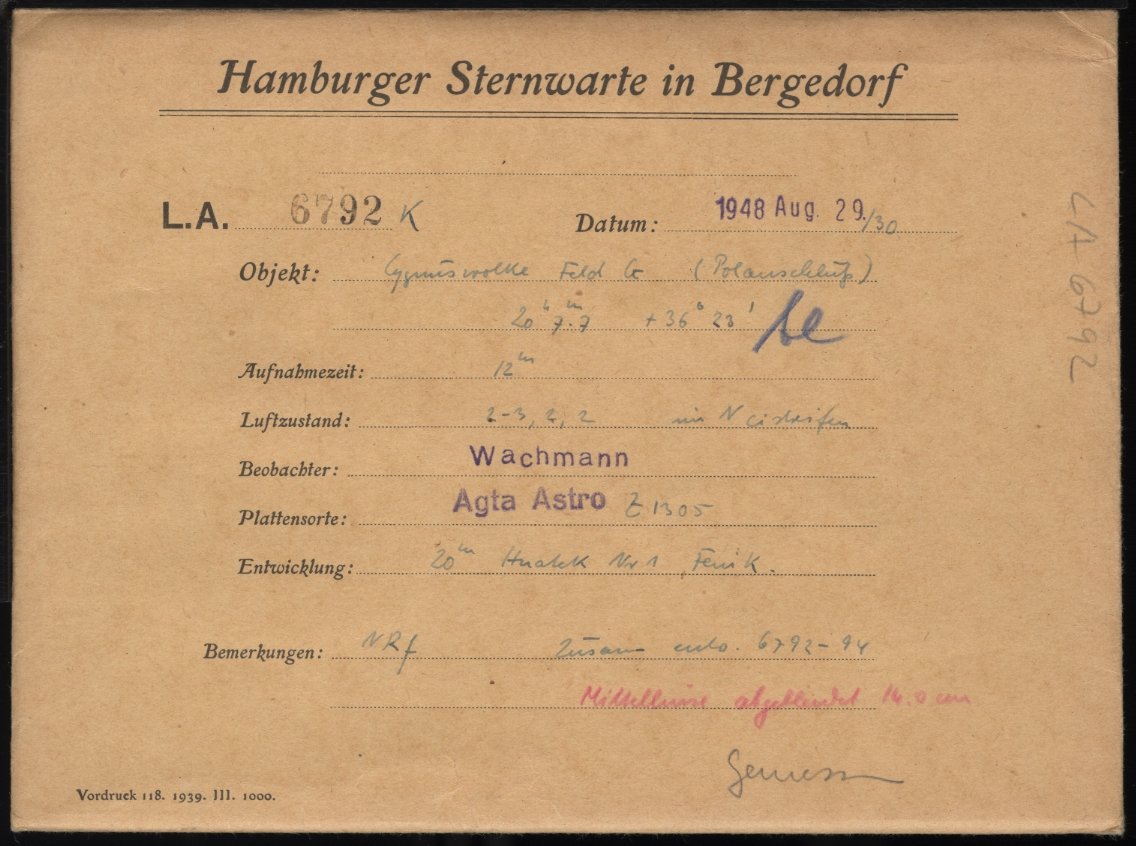 Hamburger Sternwarte in Bergedorf
L.A. 6792 K
Datum: 1948 Aug. 29./30
Objekt: Cygnuswolke Feld G (Polanschluß)
20h 7m.7 +36° 23'
Aufnahmezeit: 12m
Luftzustand: 2-3, 2, 2 im N cistreifen
Beobachter: Wachmann
Plattensorte: Agfa Astro Z 1305
Entwicklung: 20m Hnatek Nr 1
Bemerkungen: NRf 6792-94
Mittellinse abgeblendet 14.0 cm
Gemessen
Vordruck 118. 1939. III. 1000.
LA 6792